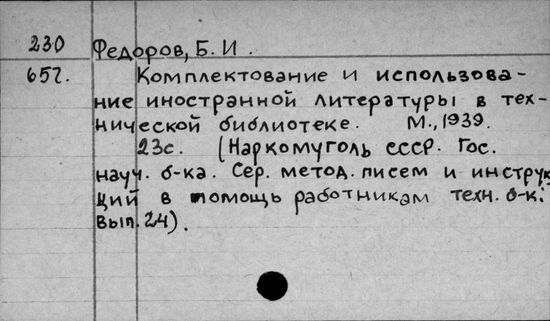 230 Федоров, Б. И.
657. Комплектование и использова-
ние иностранной литературы в тех-
нической библиотеке. М., 1939.
23с. (Наркомуголь СССР. Гос.
науч. б-ка. Сер. метод. писем и инструк
ций в помощь работникам техн. б-к.
Вып. 24).